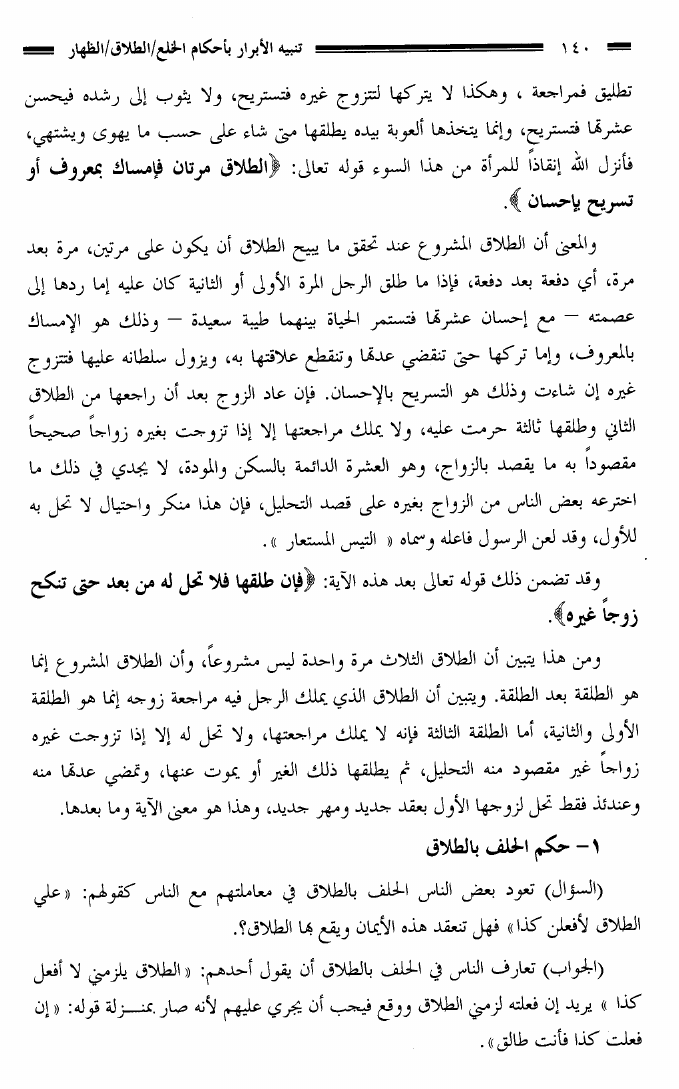 ١٤٠ تنبيه الأبرار بأحكام الخلع/الطلاق/الظهار
تطليق فمراجعة ، وهكذا لا يتركها لتتزوج غيره فتستريح، ولا يثوب إلى رشده فيحسن
عشرتها فتستريح، وإنما يتخذها ألعوبة بيده يطلقها متى شاء على حسب ما يهوى ويشتهي،
فأنزل الله إنقاذاً للمرأة من هذا السوء قوله تعالى: ﴿الطلاق مرتان فإمساك بمعروف أو
تسريح بإحسان ﴾.
والمعنى أن الطلاق المشروع عند تحقق ما يبيح الطلاق أن يكون على مرتين، مرة بعد
مرة، أي دفعة بعد دفعة، فإذا ما طلق الرجل المرة الأولى أو الثانية كان عليه إما ردها إلى
عصمته – مع إحسان عشرتها فتستمر الحياة بينهما طيبة سعيدة – وذلك هو الإمساك
بالمعروف، وإما تركها حتى تنقضي عدتها وتنقطع علاقتها به، ويزول سلطانه عليها فتتزوج
غيره إن شاءت وذلك هو التسريح بالإحسان. فإن عاد الزوج بعد أن راجعها من الطلاق
الثاني وطلقها ثالثة حرمت عليه، ولا يملك مراجعتها إلا إذا تزوجت بغيره زواجاً صحيحاً
مقصوداً به ما يقصد بالزواج، وهو العشرة الدائمة بالسكن والمودة، لا يجدي في ذلك ما
اخترعه بعض الناس من الزواج بغيره على قصد التحليل، فإن هذا منكر واحتيال لا تحل به
للأول، وقد لعن الرسول فاعله وسماه « التيس المستعار ».
وقد تضمن ذلك قوله تعالى بعد هذه الآية: ﴿فإن طلقها فلا تحل له من بعد حتى تنكح
زوجاً غيره﴾.
ومن هذا يتبين أن الطلاق الثلاث مرة واحدة ليس مشروعاً، وأن الطلاق المشروع إنما
هو الطلقة بعد الطلقة. ويتبين أن الطلاق الذي يملك الرجل فيه مراجعة زوجه إنما هو الطلقة
الأولى والثانية، أما الطلقة الثالثة فإنه لا يملك مراجعتها، ولا تحل له إلا إذا تزوجت غيره
زواجاً غير مقصود منه التحليل، ثم يطلقها ذلك الغير أو يموت عنها، وتمضي عدتها منه
وعندئذ فقط تحل لزوجها الأول بعقد جديد ومهر جديد، وهذا هو معنى الآية وما بعدها.
١– حكم الحلف بالطلاق
(السؤال) تعود بعض الناس الحلف بالطلاق في معاملتهم مع الناس كقولهم: « علي
الطلاق لأفعلن كذا» فهل تنعقد هذه الأيمان ويقع بها الطلاق؟.
(الجواب) تعارف الناس في الحلف بالطلاق أن يقول أحدهم: « الطلاق يلزمني لا أفعل
كذا » يريد إن فعلته لزمني الطلاق ووقع فيجب أن يجري عليهم لأنه صار بمنـزلة قوله: « إن
فعلت كذا فأنت طالق».